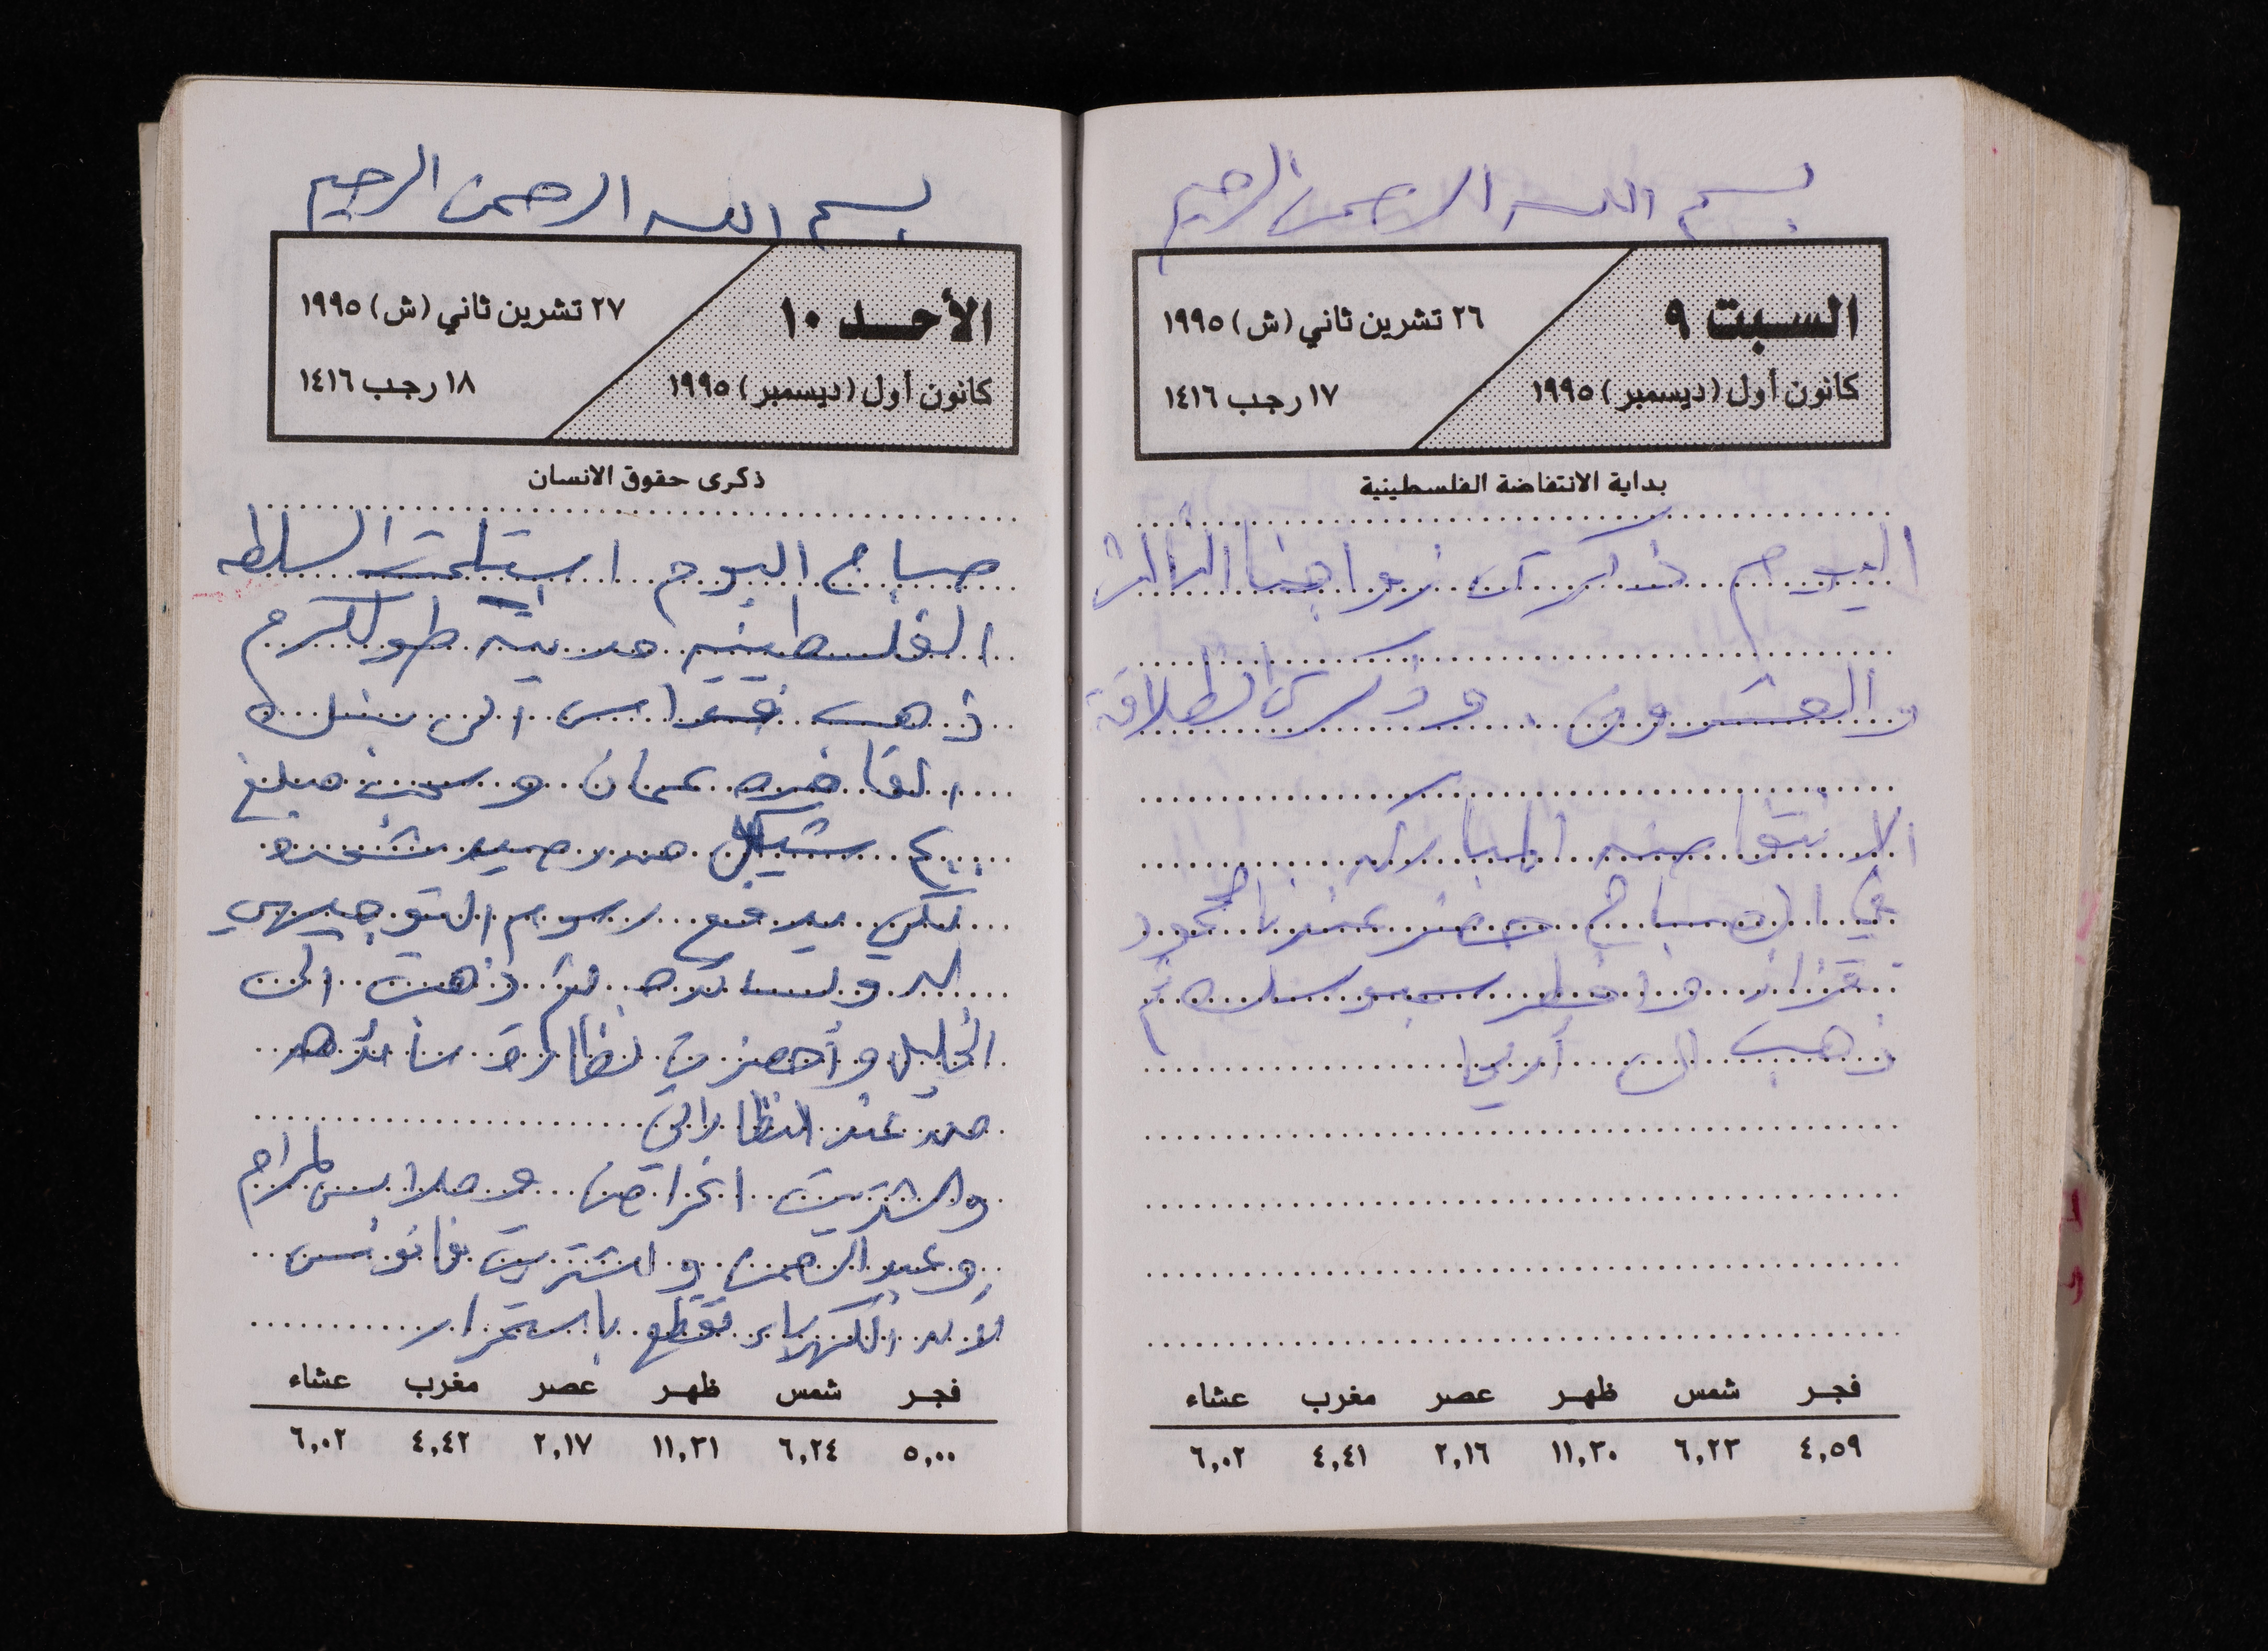 بسم الله الرحمن الرحيم
السبت ٩
كانون أول (ديسمبر) ١٩٩٥
٢٦ تشرين ثاني (ش) ١٩٩٥
١٧ رجب ١٤١٦
بداية الانتفاضة الفلسطينية
اليوم ذكرى زواجنا الثالث
والعشرون وذكرى انطلاقة
الانتفاضه المباركه
في الصباح حضر عندنا محمود
وافطر ثم
ذهب الى أريحا
فجر شمس ظهر عصر مغرب عشاء
٤,٥٩ ٦,٢٣ ١١,٣٠ ٢,١٦ ٤,٤١ ٦,٠٢
بسم الله الرحمن الرحيم
الأحد ١٠
كانون أول (ديسمبر) ١٩٩٥
٢٧ تشرين ثاني (ش) ١٩٩٥
١٨ رجب ١٤١٦
ذكرى حقوق الانسان
صباح اليوم استلمت السلطه
الفلسطينيه مدينة طولكرم
ذهب فراس الى بنك
القاهره عمان وسحب مبلغ
شيكل من رصيد
لكي يدفع رسوم التوجيهي
ثم ذهبت الى
الخليل وأحضرت نظارة
من عند النظاراتي
واشتريت اغراض وملابس لمرام
وعبد الرحمن واشتريت فانوس
لأن الكهرباء تقطع باستمرار
فجر شمس ظهر عصر مغرب عشاء
٥,٠٠ ٦,٢٤ ١١,٣١ ٢,١٧ ٤,٤٢ ٦,٠٢